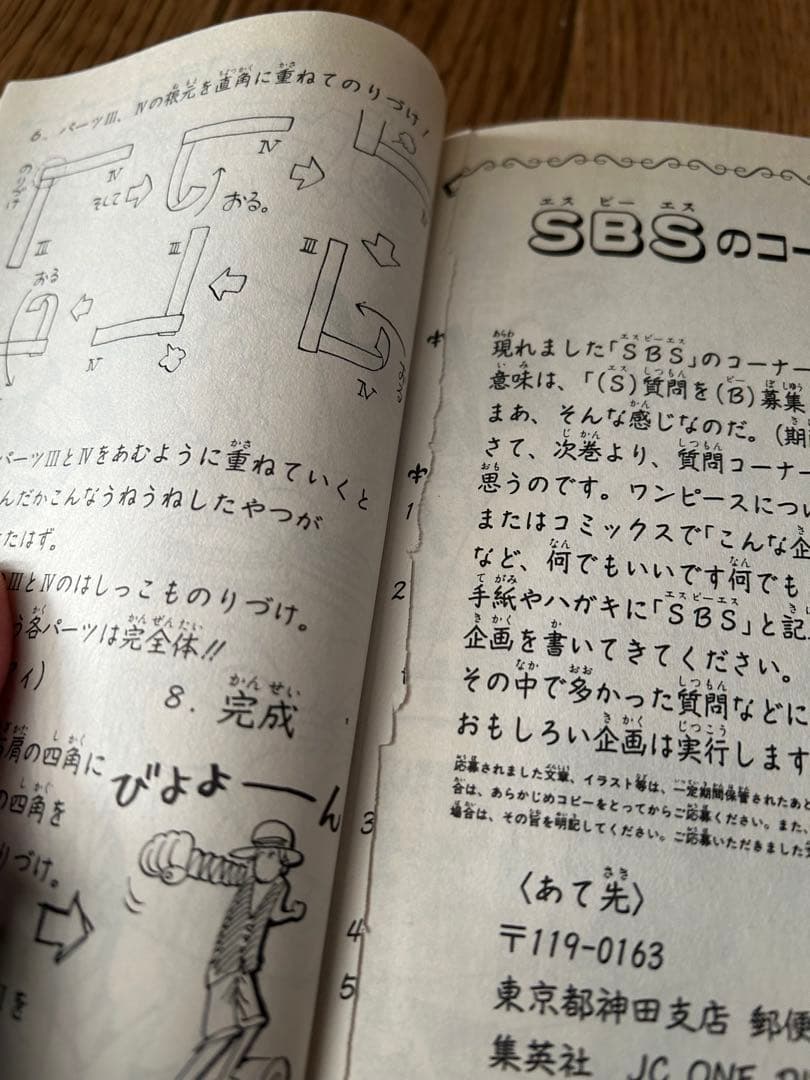 6. パーツⅢ、Ⅳの根元を直角に重ねてのりづけ！
のりづけ
Ⅳ
そして
Ⅲ
Ⅳ
おる。
おる
Ⅲ
Ⅳ
Ⅲ
Ⅳ
パーツⅢとⅣをあむように重ねていくと
んだかこんなうねうねしたやつが
たはず。
ⅢとⅣのはしっこものりづけ。
う各パーツは完全体!!
8. 完成
肩の四角に
の四角を
りづけ。
を
びよよーーん
1
2
3
4
5
SBSのコー
エス ビー エス
現れました「SBS」のコーナー
意味は、「(S)質問を(B)募集
まあ、そんな感じなのだ。(期
さて、次巻より、質問コーナー
思うのです。ワンピースについ
またはコミックスで「こんな企
など、何でもいいです何でも
手紙やハガキに「SBS」と記
企画を書いてきてください。
その中で多かった質問などに
おもしろい企画は実行します
応募されました文章、イラスト等は、一定期間保管されたあと
合は、あらかじめコピーをとってからご応募ください。また、
場合は、その旨を明記してください。ご応募いただきました
〈あて先〉
〒119-0163
東京都神田支店 郵便
集英社 JC ONE PI